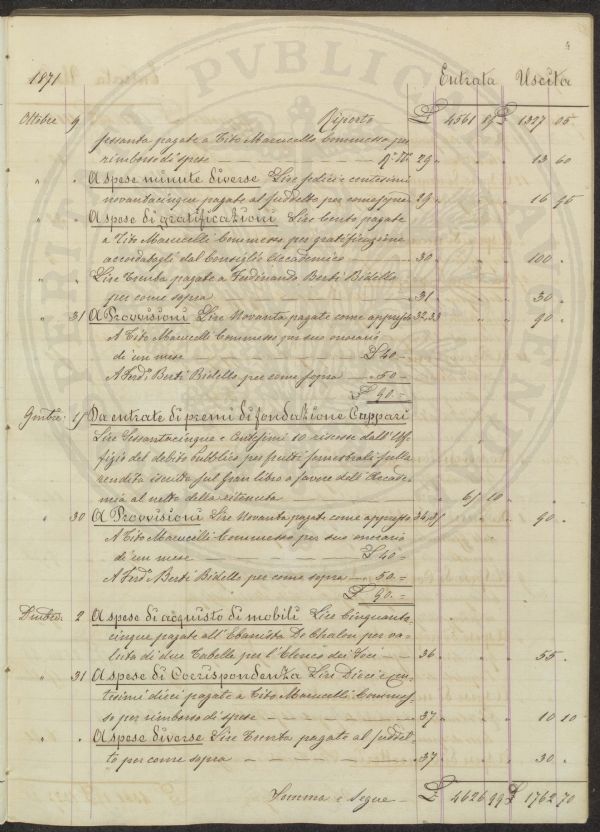 4
1871 Entrata Uscita
Ottobre 9 Riporto £ 4561 89 £ 1327 05
sessanta pagate a Tito Marucelli Commesso per
rimborso di spese 29 13 60
" " A spese minute diverse Lire sedici e centesimi
novantacinque pagate al suddetto per come sopra 29 16 95
" " A spese di gratificazioni Lire Cento pagate
a Tito Marucelli Commesso per gratificazione
accordatagli dal Consiglio Accademico 30 100 "
" " Lire Trenta pagate a Ferdinando Berti Bidello
per come sopra 31 30 "
" 31 A Provvisioni Lire Novanta pagate come appresso 32,33 90 "
A Tito Marucelli Commesso per suo onorario
di un mese £ 40 =
A Ferd.º Berti Bidello per come sopra 50 =
£ 90. =
9mbre 15 Da entrate di premi di fondazione Cappari
Lire Sessantacinque e Centesimi 10 riscosse dall'Uf=
fizio del debito Pubblico per frutti semestrali sulla
rendita iscritta sul Gran libro a favore dell'Accade=
mia al netto della ritenuta 65 10
" 30 A Provvisioni Lire Novanta pagate come appresso 34,35 90 "
A Tito Marucelli Commesso per suo onorario
di un mese £ 40 =
A Ferd.º Berti Bidello per come sopra 50. =
£ 90. =
Dmbre 2 A spese di acquisto di mobili Lire Cinquanta
cinque pagate all'Ebanista De Chalon per va=
luta di due Tabelle per l'Elenco dei Soci 36 55 "
" 31 A spese di Corrispondenza Lire Dieci e cen=
tesimi dieci pagate a Tito Marucelli Commes=
so per rimborso di spese 37 10 10
" " A spese diverse Lire Trenta pagate al suddet=
to per come sopra 37 30 "
Somma e segue £ 4626 99 £ 1762 70